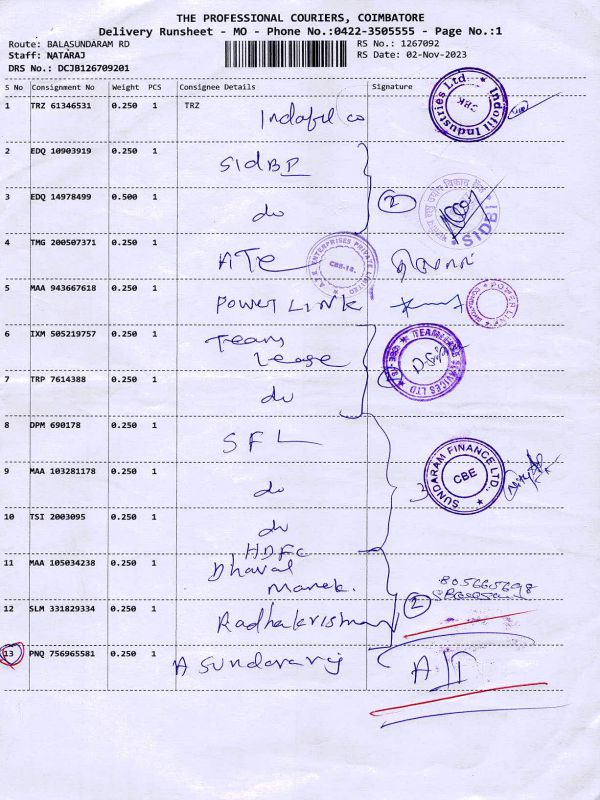 THE PROFESSIONAL COURIERS, COIMBATORE
Delivery Runsheet - MO - Phone No.:0422-3505555 - Page No.:1
Route: BALASUNDARAM RD RS No.: 1267092
Staff: NATARAJ RS Date: 02-Nov-2023
DRS No.: DCJB126709201
S No Consignment No Weight PCS Consignee Details Signature
1 TRZ 61346531 0.250 1 TRZ
Indofil co
Indofil Industries Ltd. CBK
2 EDQ 10903919 0.250 1 SIDBI
3 EDQ 14978499 0.500 1 do 2
SIDBI
4 TMG 200507371 0.250 1 ATE
ENTERPRISES PRIVATE LIMITED CBE-18.
5 MAA 943667618 0.250 1 POWER LINK
POWER LINK
6 IXM 505219757 0.250 1 Team
Lease
TEAMLEASE SERVICES LTD
7 TRP 7614388 0.250 1 do
8 DPM 690178 0.250 1 SFL
SUNDARAM FINANCE LTD. CBE
9 MAA 103281178 0.250 1 do 3
10 TSI 2003095 0.250 1 do
HDFC
11 MAA 105034238 0.250 1 Dhaval
Manek.
12 SLM 331829334 0.250 1 Radhakrishnan 2
13 PNQ 756965581 0.250 1 A Sundararaj